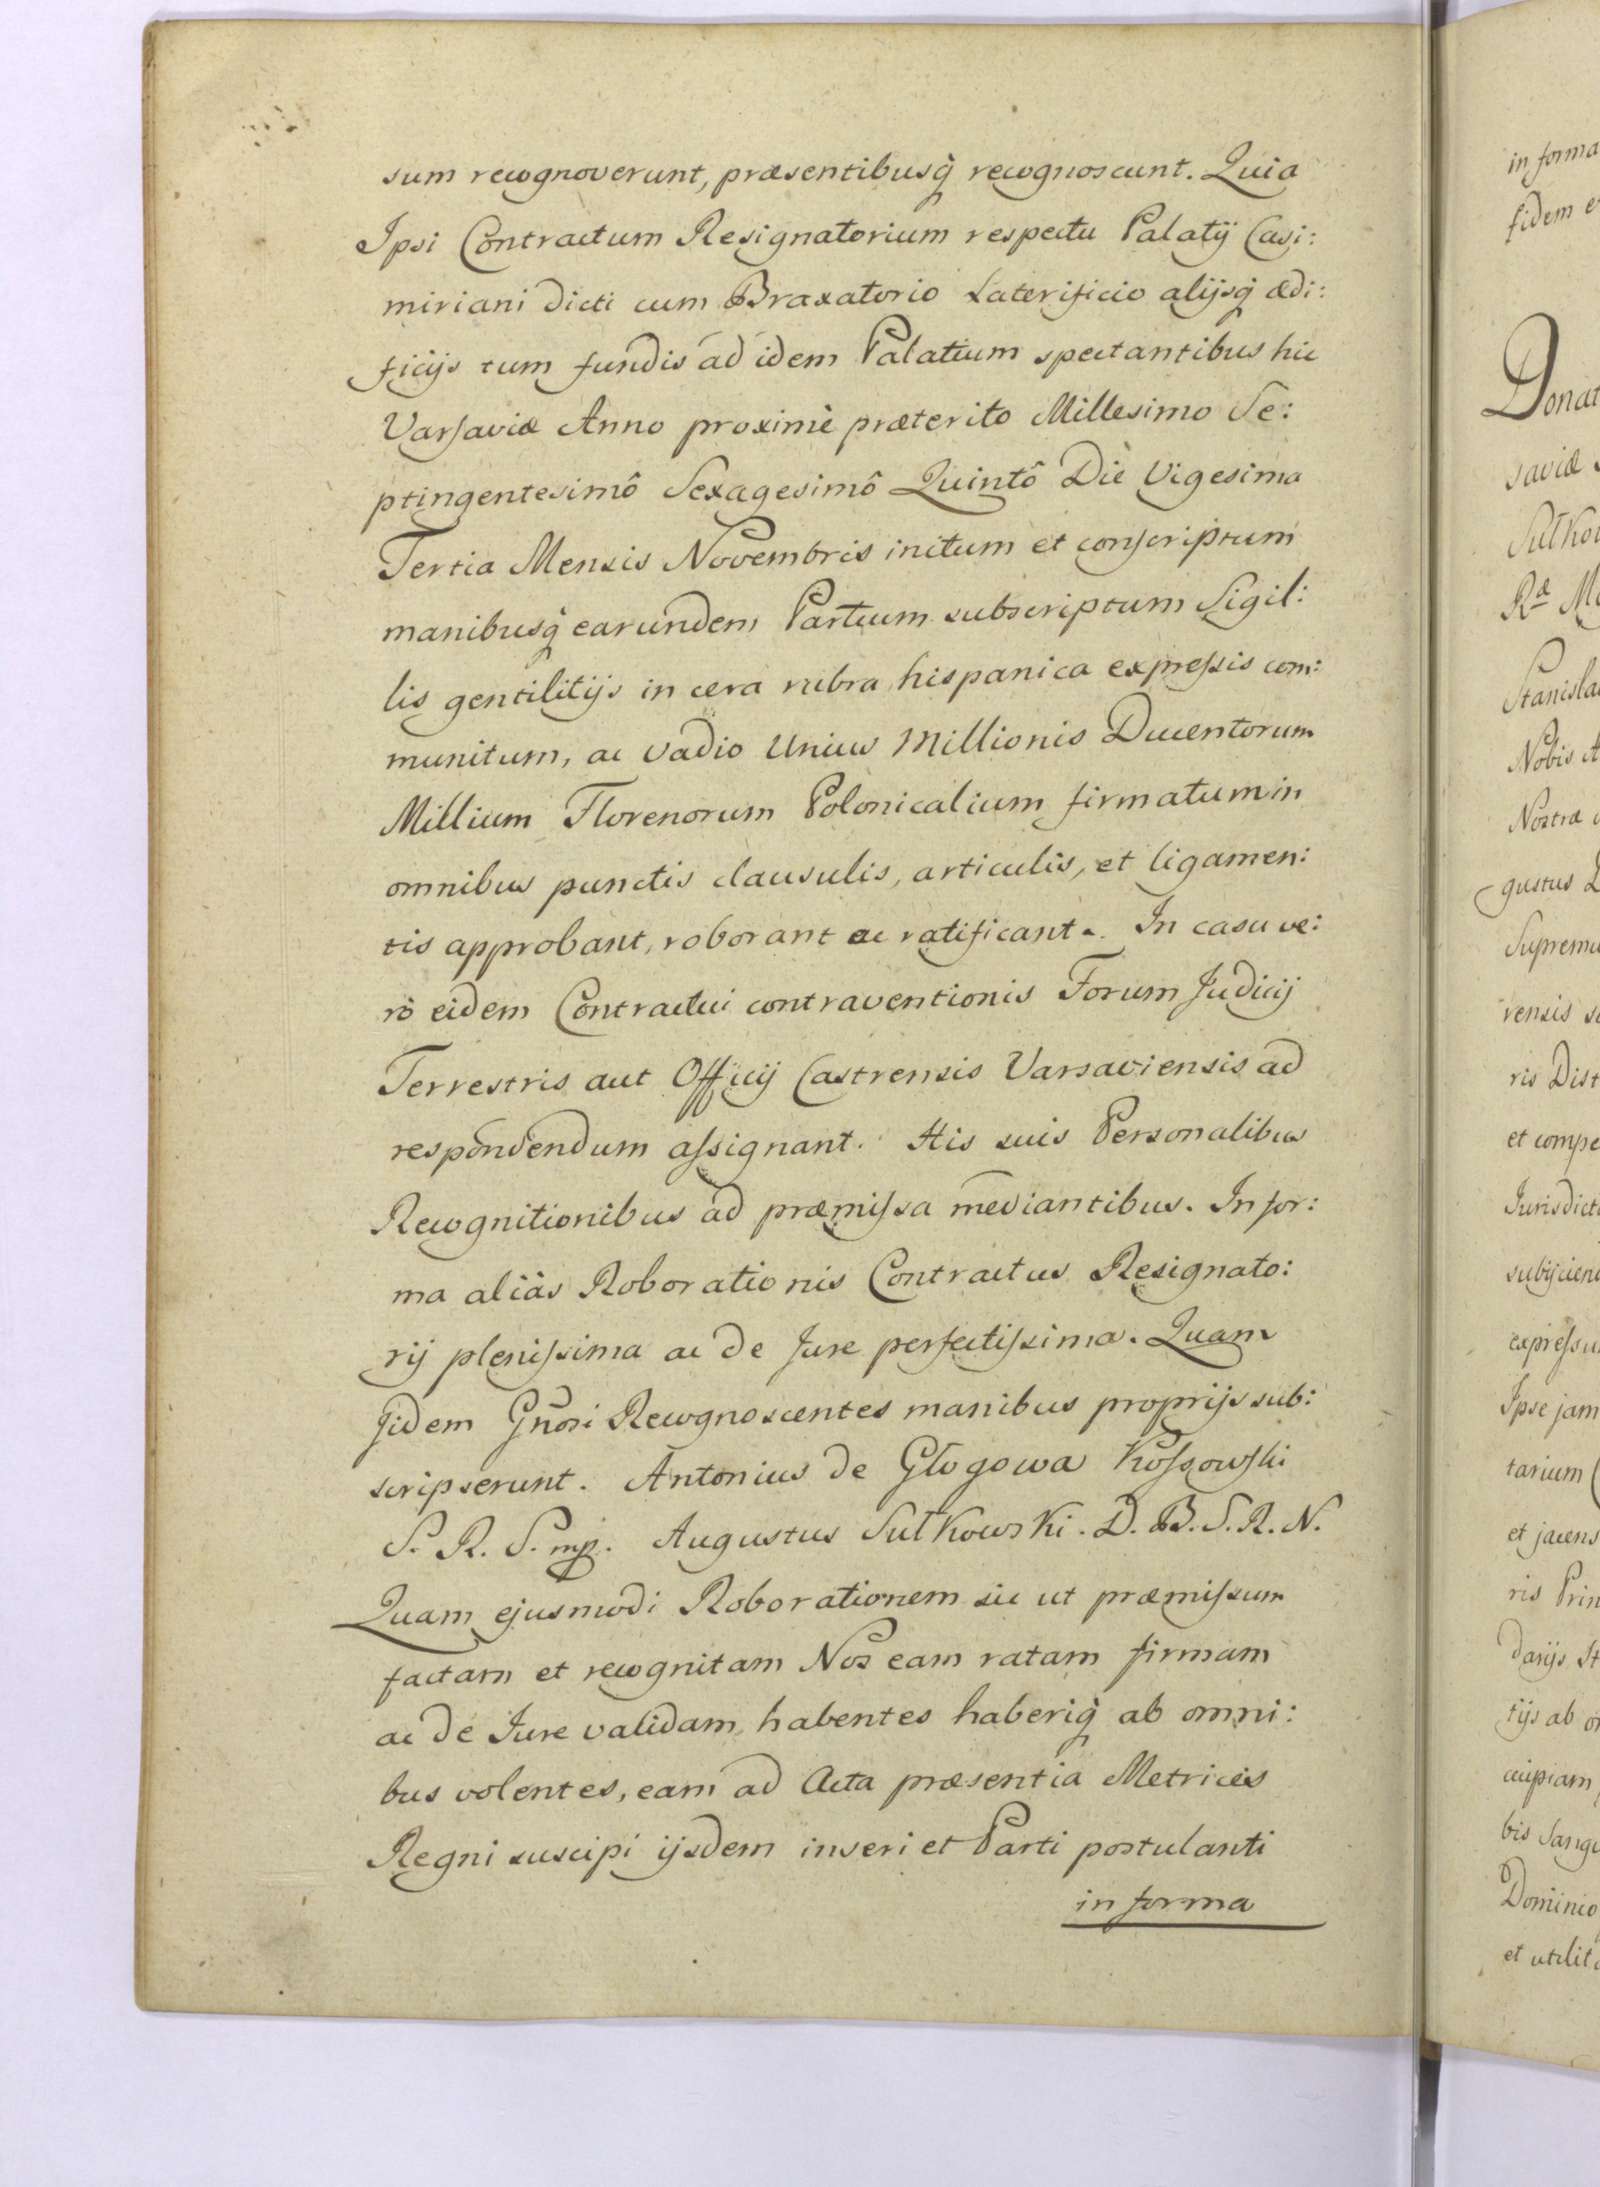 sum recognoverunt, præsentibusq̀ recognoscunt. Quia
Ipsi Contractum Resignatorium respectu Palatij Casi:
miriani dicti cum Braxatorio Laterificio alijsq̀ ædi:
ficijs tum fundis ad idem Palatium spectantibus hic
Varsaviæ Anno proximè præterito Millesimo Se:
ptingentesimô Sexagesimô Quintô Diè Vigesima
Tertia Mensis Novembris initum et conscriptum
manibusq̀ earundem Partium subscriptum Sigil:
lis gentilitijs in cera rubra hispanica expressis com:
munitum, ac vadio Unius Millionis Ducentorum
Millium Florenorum Polonicalium firmatum in
omnibus punctis clausulis, articulis, et ligamen:
tis approbant, roborant ac ratificant. In casu ve:
rò eidem Contractui contraventionis Forum Judicij
Terrestris aut Officij Castrensis Varsaviensis ad
respondendum assignant. His suis Personalibus
Recognitionibus ad præmissa mediantibus. In for:
ma aliàs Roborationis Contractus Resignato:
rij plenissima ac de Jure perfectissima. Quam
Jidem Gñosi Recognoscentes manibus proprijs sub:
scripserunt. Antonius de Głogowa Kossowski
S. R. S. mp. Augustus Sułkowski. D. B. S. R. N.
Quam ejusmodi Roborationem sic ut præmissum
factam et recognitam Nos eam ratam firmam
ac de Jure validam habentes haberiq̀ ab omni:
bus volentes, eam ad Acta præsentia Metrices
Regni suscipi ijsdem inseri et Parti postulanti
in forma
in forma
fidem
Donat
saviæ
Sułkow
Ræ
Stanisla
Nobis
Nostræ
gustus
Supremu
rensis
ris Dist
et compe
Jurisdict
subijcien
expressu
Ipse jam
tarium
et jacens
ris Prin
darijs
tijs ab
cujpiam
bis Sangu
Dominio
et utilit